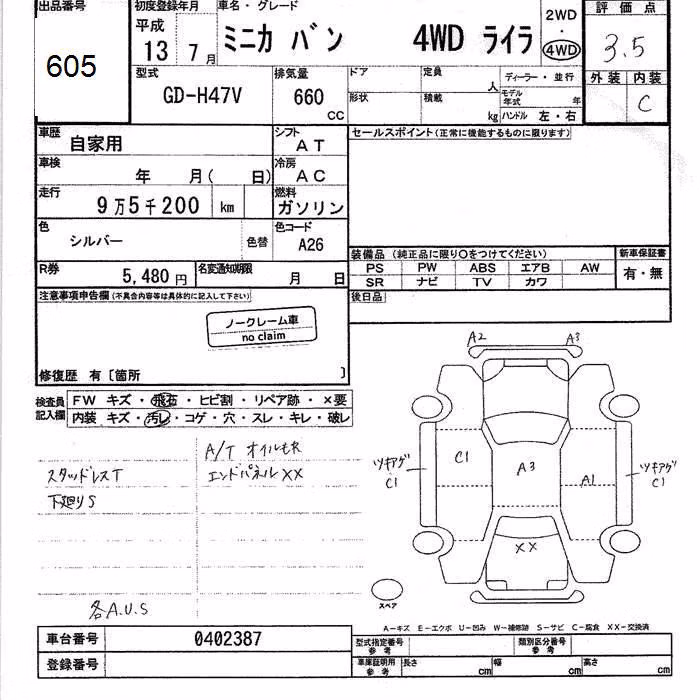 出品番号 初度登録年月 車名・グレード 評価点
605 平成 13 7月 ミニカ バン 4WD ライラ 2WD ・ 4WD 3.5
型式 排気量 ドア 定員 人 ディーラー・並行 外装 内装
GD-H47V 660 CC 形状 積載 kg モデル年式 年 ハンドル 左・右 C
車歴 自家用 シフト AT セールスポイント(正常に機能するものに限ります)
車検 年 月( 日) 冷房 AC
走行 9万5千200 km 燃料 ガソリン
色 シルバー 色替 色コード A26
装備品 (純正品に限り○をつけてください) 新車保証書
PS PW ABS エアB AW 有・無
SR ナビ TV カワ
R券 5,480円 名変通知期限 月 日
後日品
注意事項申告欄(不具合内容等は具体的に記入して下さい)
ノークレーム車
no claim
修復歴 有〔箇所 〕
検査員記入欄 FW キズ・飛石・ヒビ割・リペア跡・×要
内装 キズ・汚レ・コゲ・穴・スレ・キレ・破レ
A2 A3
A/T オイルモレ
スタッドレスT エンドパネルXX
下廻りS
ツキアゲ C1 C1 A3 A1 ツキアゲ C1
XX
スペア
各A.U.S
A-キズ E-エクボ U-凹み W-補修跡 S-サビ C-腐食 XX-交換済
車台番号 0402387 型式指定番号 参考 類別区分番号 参考
登録番号 車庫証明用 参考 長さ cm 幅 cm 高さ cm